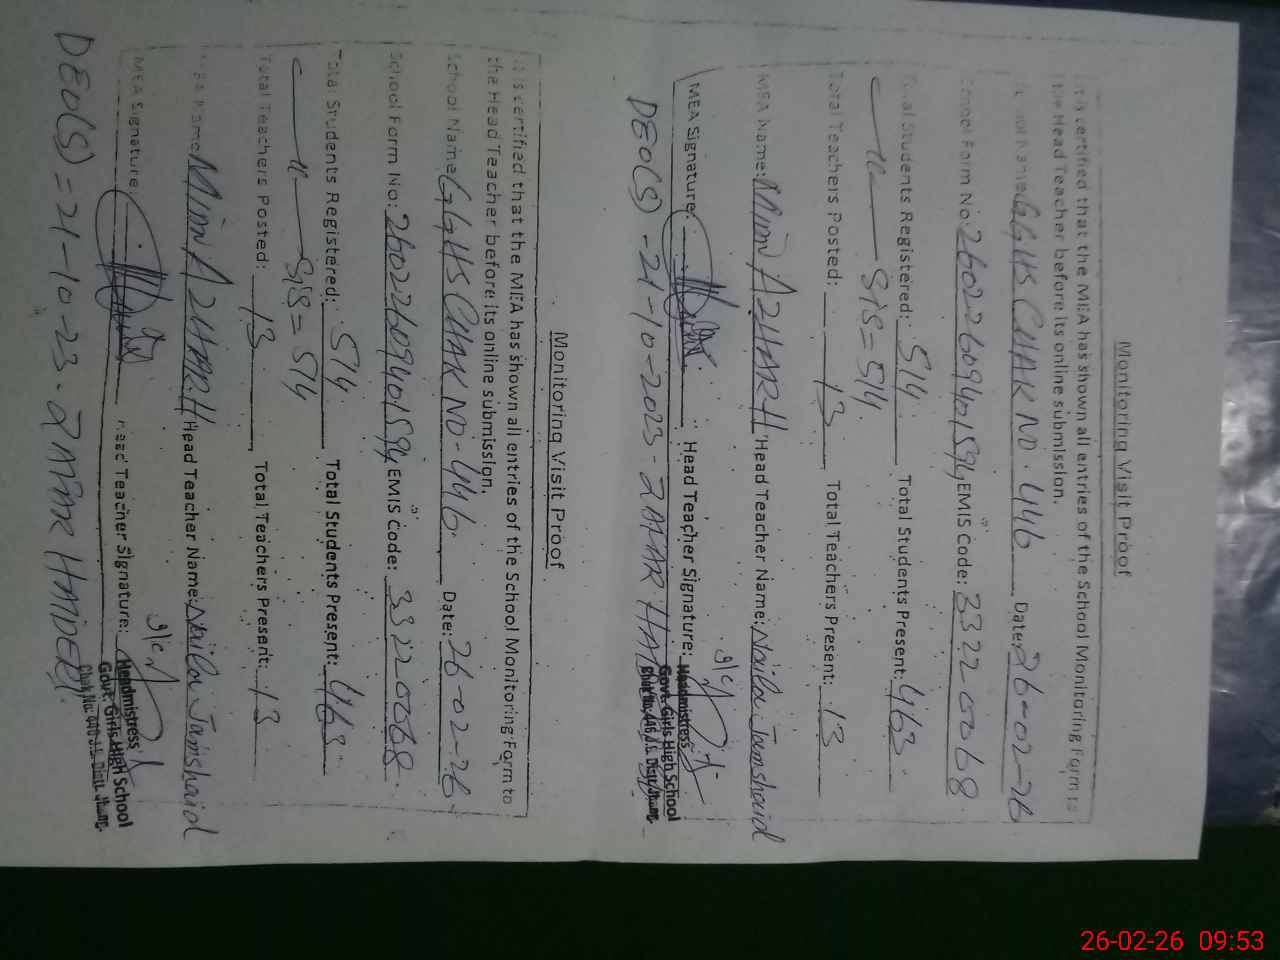 Monitoring Visit Proof
It is certified that the MEA has shown all entries of the School Monitoring Form to
the Head Teacher before its online submission.
School Name: GGHS CHAK NO. 446 Date: 26-02-26
School Form No: 2602260940159 EMIS Code: 33220068
Total Students Registered: 514 Total Students Present: 463
SIS = 514
Total Teachers Posted: 13 Total Teachers Present: 13
MEA Name: AZHAR Head Teacher Name: Naila Jamshaid
MEA Signature: Head Teacher Signature:
Headmistress
Govt. Girls High School
Chak No. 446 J.B. Distt.
DEO(S) - 21-10-2023 -
Monitoring Visit Proof
It is certified that the MEA has shown all entries of the School Monitoring Form to
the Head Teacher before its online submission.
School Name: GGHS CHAK NO - 446 Date: 26-02-26
School Form No: 2602260940159 EMIS Code: 33220068
Total Students Registered: 514 Total Students Present: 463
SIS = 514
Total Teachers Posted: 13 Total Teachers Present: 13
MEA Name: AZHAR Head Teacher Name: Naila Jamshaid
MEA Signature: Head Teacher Signature:
Headmistress
Govt. Girls High School
DEO(S) = 21-10-23.
26-02-26 09:53